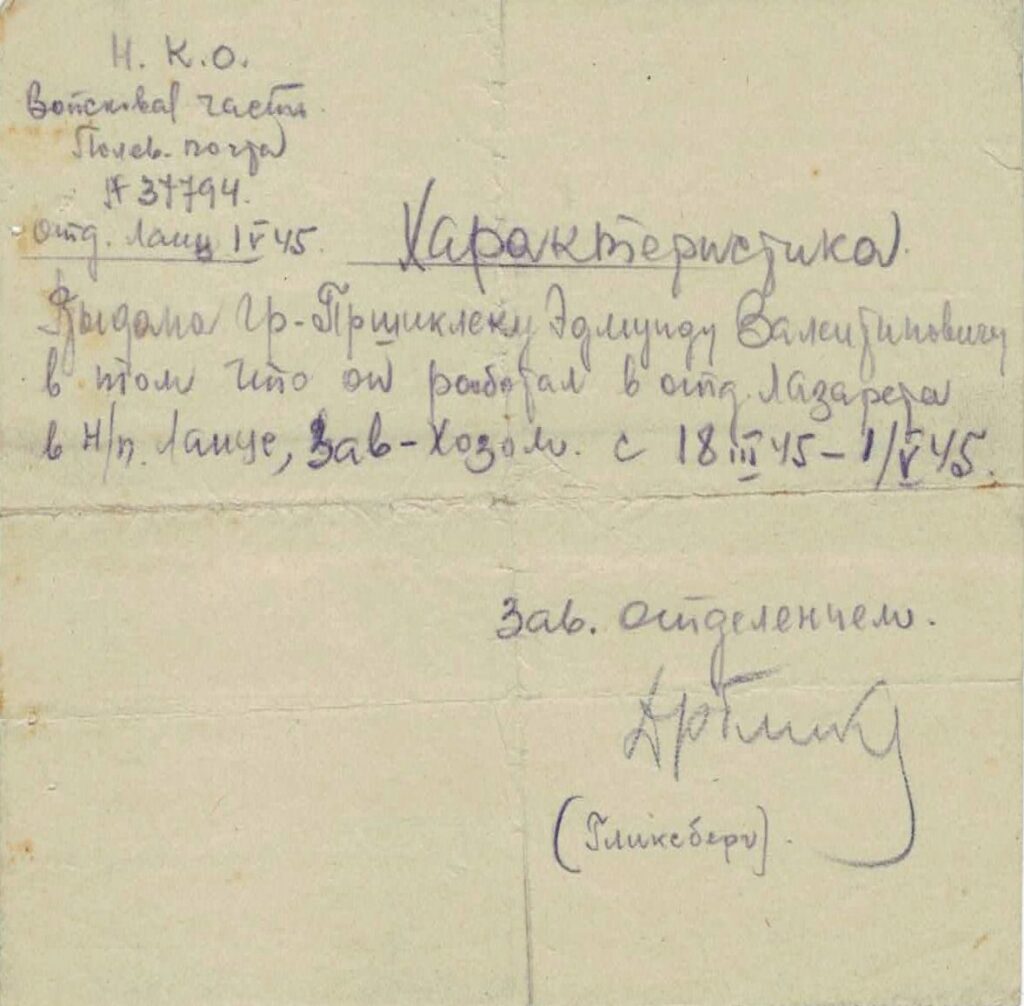 Н. К. О.
Войсковая часть
Полев. почта
№ 37794.
отд. Ланц 1 V 45.
Характеристика
Выдана гр-Пршиклеку Эдмунду Валентиновичу
в том что он работал в отд. Лазарета
в н/п. Ланце, Зав-Хозом. с 18 III 45 - 1/V 45.
Зав. отделением.
(Гликсберг).